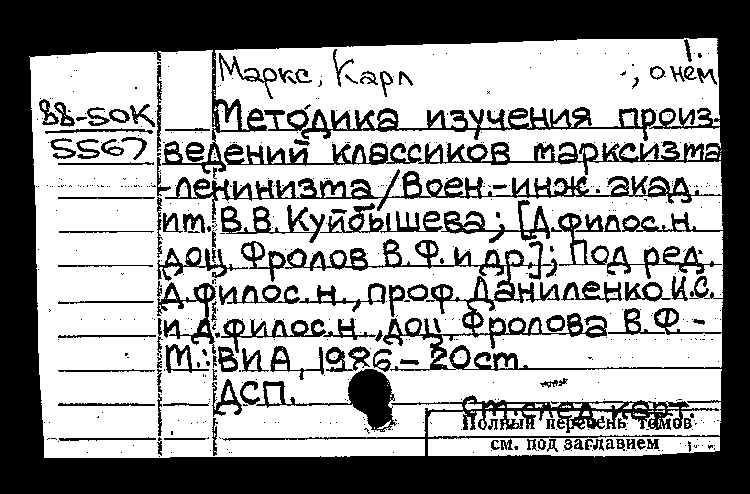 1.
Маркс, Карл ; о нем
88-50К
5567
Методика изучения произ-
ведений классиков марксизма
-ленинизма / Воен.-инж. акад.
им. В.В. Куйбышева; [Д.филос.н.
доц. Фролов В.Ф. и др.]; Под ред.
д.филос.н., проф. Даниленко И.С.
и д.филос.н., доц. Фролова В.Ф. -
М.: ВИА, 1986. - 20 ст.
ДСП.
См. след. карт.
Полный перечень томов
см. под заглавием